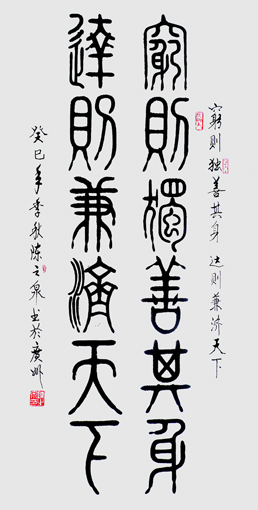 窮则独善其身 达则兼济天下
窮則獨善其身
達則兼濟天下
癸巳年季秋陈之泉书於廣州